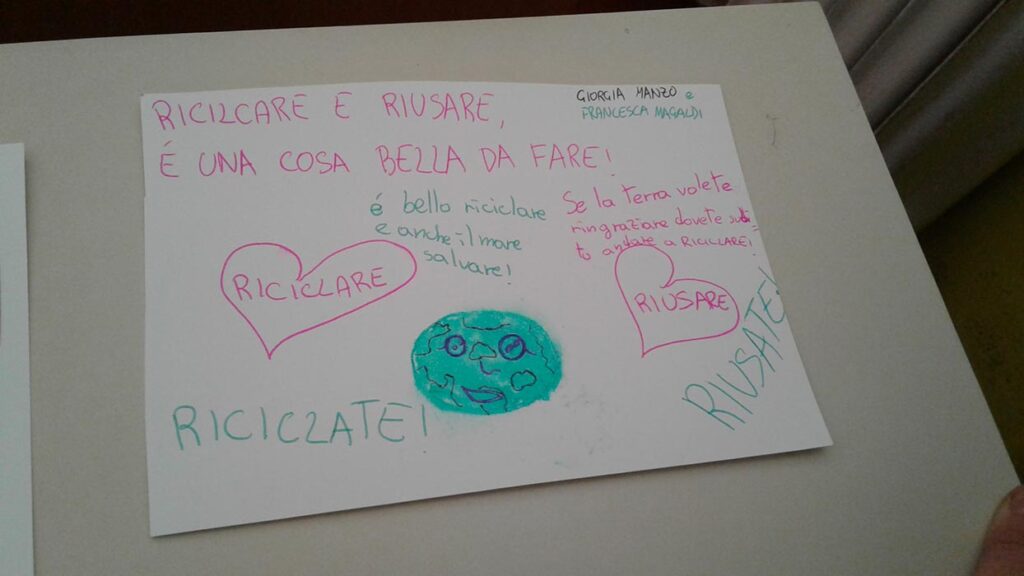 RICILCARE E RIUSARE,
É UNA COSA BELLA DA FARE!
GIORGIA MANZO e
FRANCESCA MAGALDI
é bello riciclare
e anche il mare
salvare!
Se la terra volete
ringraziare dovete subi=
to andare a RICICLARE!
RICICLARE
RIUSARE
RICICLATE!
RIUSATE!